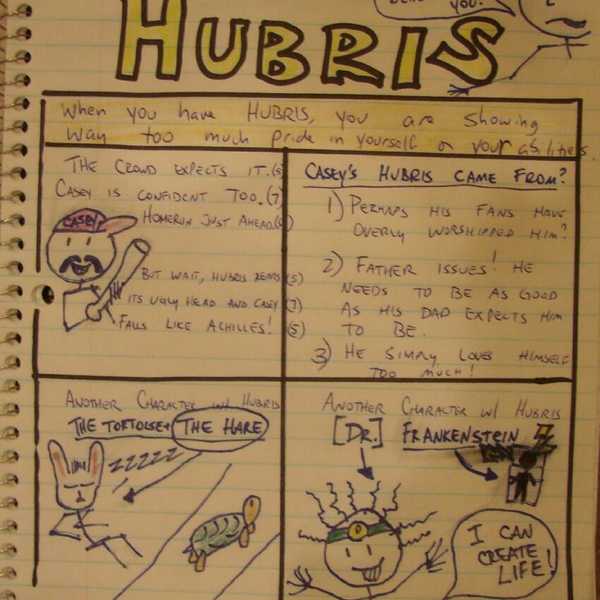 YOU.
HUBRIS
When you have HUBRIS, you are showing
way too much pride in yourself or your abilities.
THE CROWD EXPECTS IT.(5)
CASEY IS CONFIDENT TOO.(7)
HOMERUN JUST AHEAD.(5)
CASEY
BUT WAIT, HUBRIS REARS (5)
ITS UGLY HEAD AND CASEY (7)
FALLS LIKE ACHILLES! (5)
CASEY'S HUBRIS CAME FROM?
1) PERHAPS HIS FANS HAVE
OVERLY WORSHIPPED HIM?
2) FATHER ISSUES! HE
NEEDS TO BE AS GOOD
AS HIS DAD EXPECTS HIM
TO BE.
3) HE SIMPLY LOVES HIMSELF
TOO MUCH!
ANOTHER CHARACTER W/ HUBRIS
THE TORTOISE + THE HARE
ZZZZZ
ANOTHER CHARACTER W/ HUBRIS
[DR.] FRANKENSTEIN
I CAN
CREATE
LIFE!